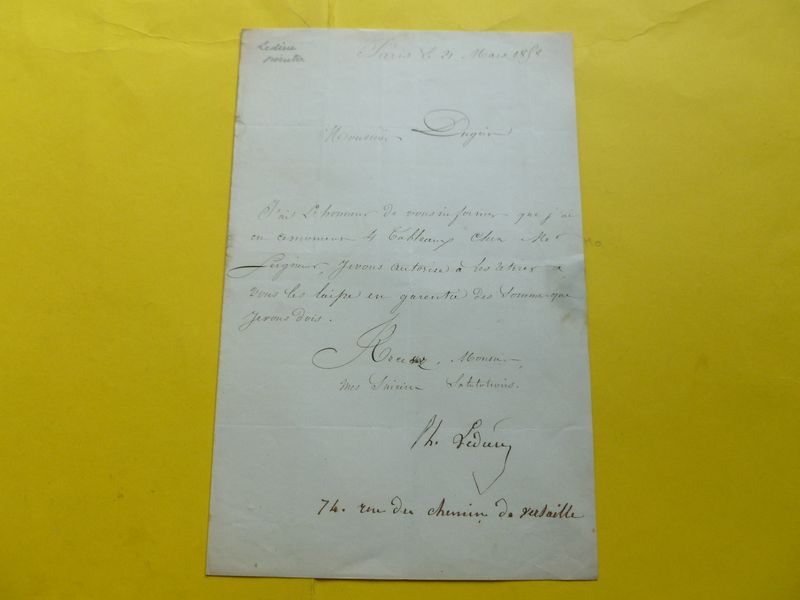 Paris le 21 Mars 185
Monsieur
J'ai L'honneur de vous informer que j'ai
en cemoment 4 Tableaux chez Mr
Seigneur, Jevous autorise à les retirer
vous les laisse en garentie des Somme que
Jevous dois.
Recevez, Monsieur,
mes Salutations.
Ph. Ledieu
74. rue du chemin de versaille